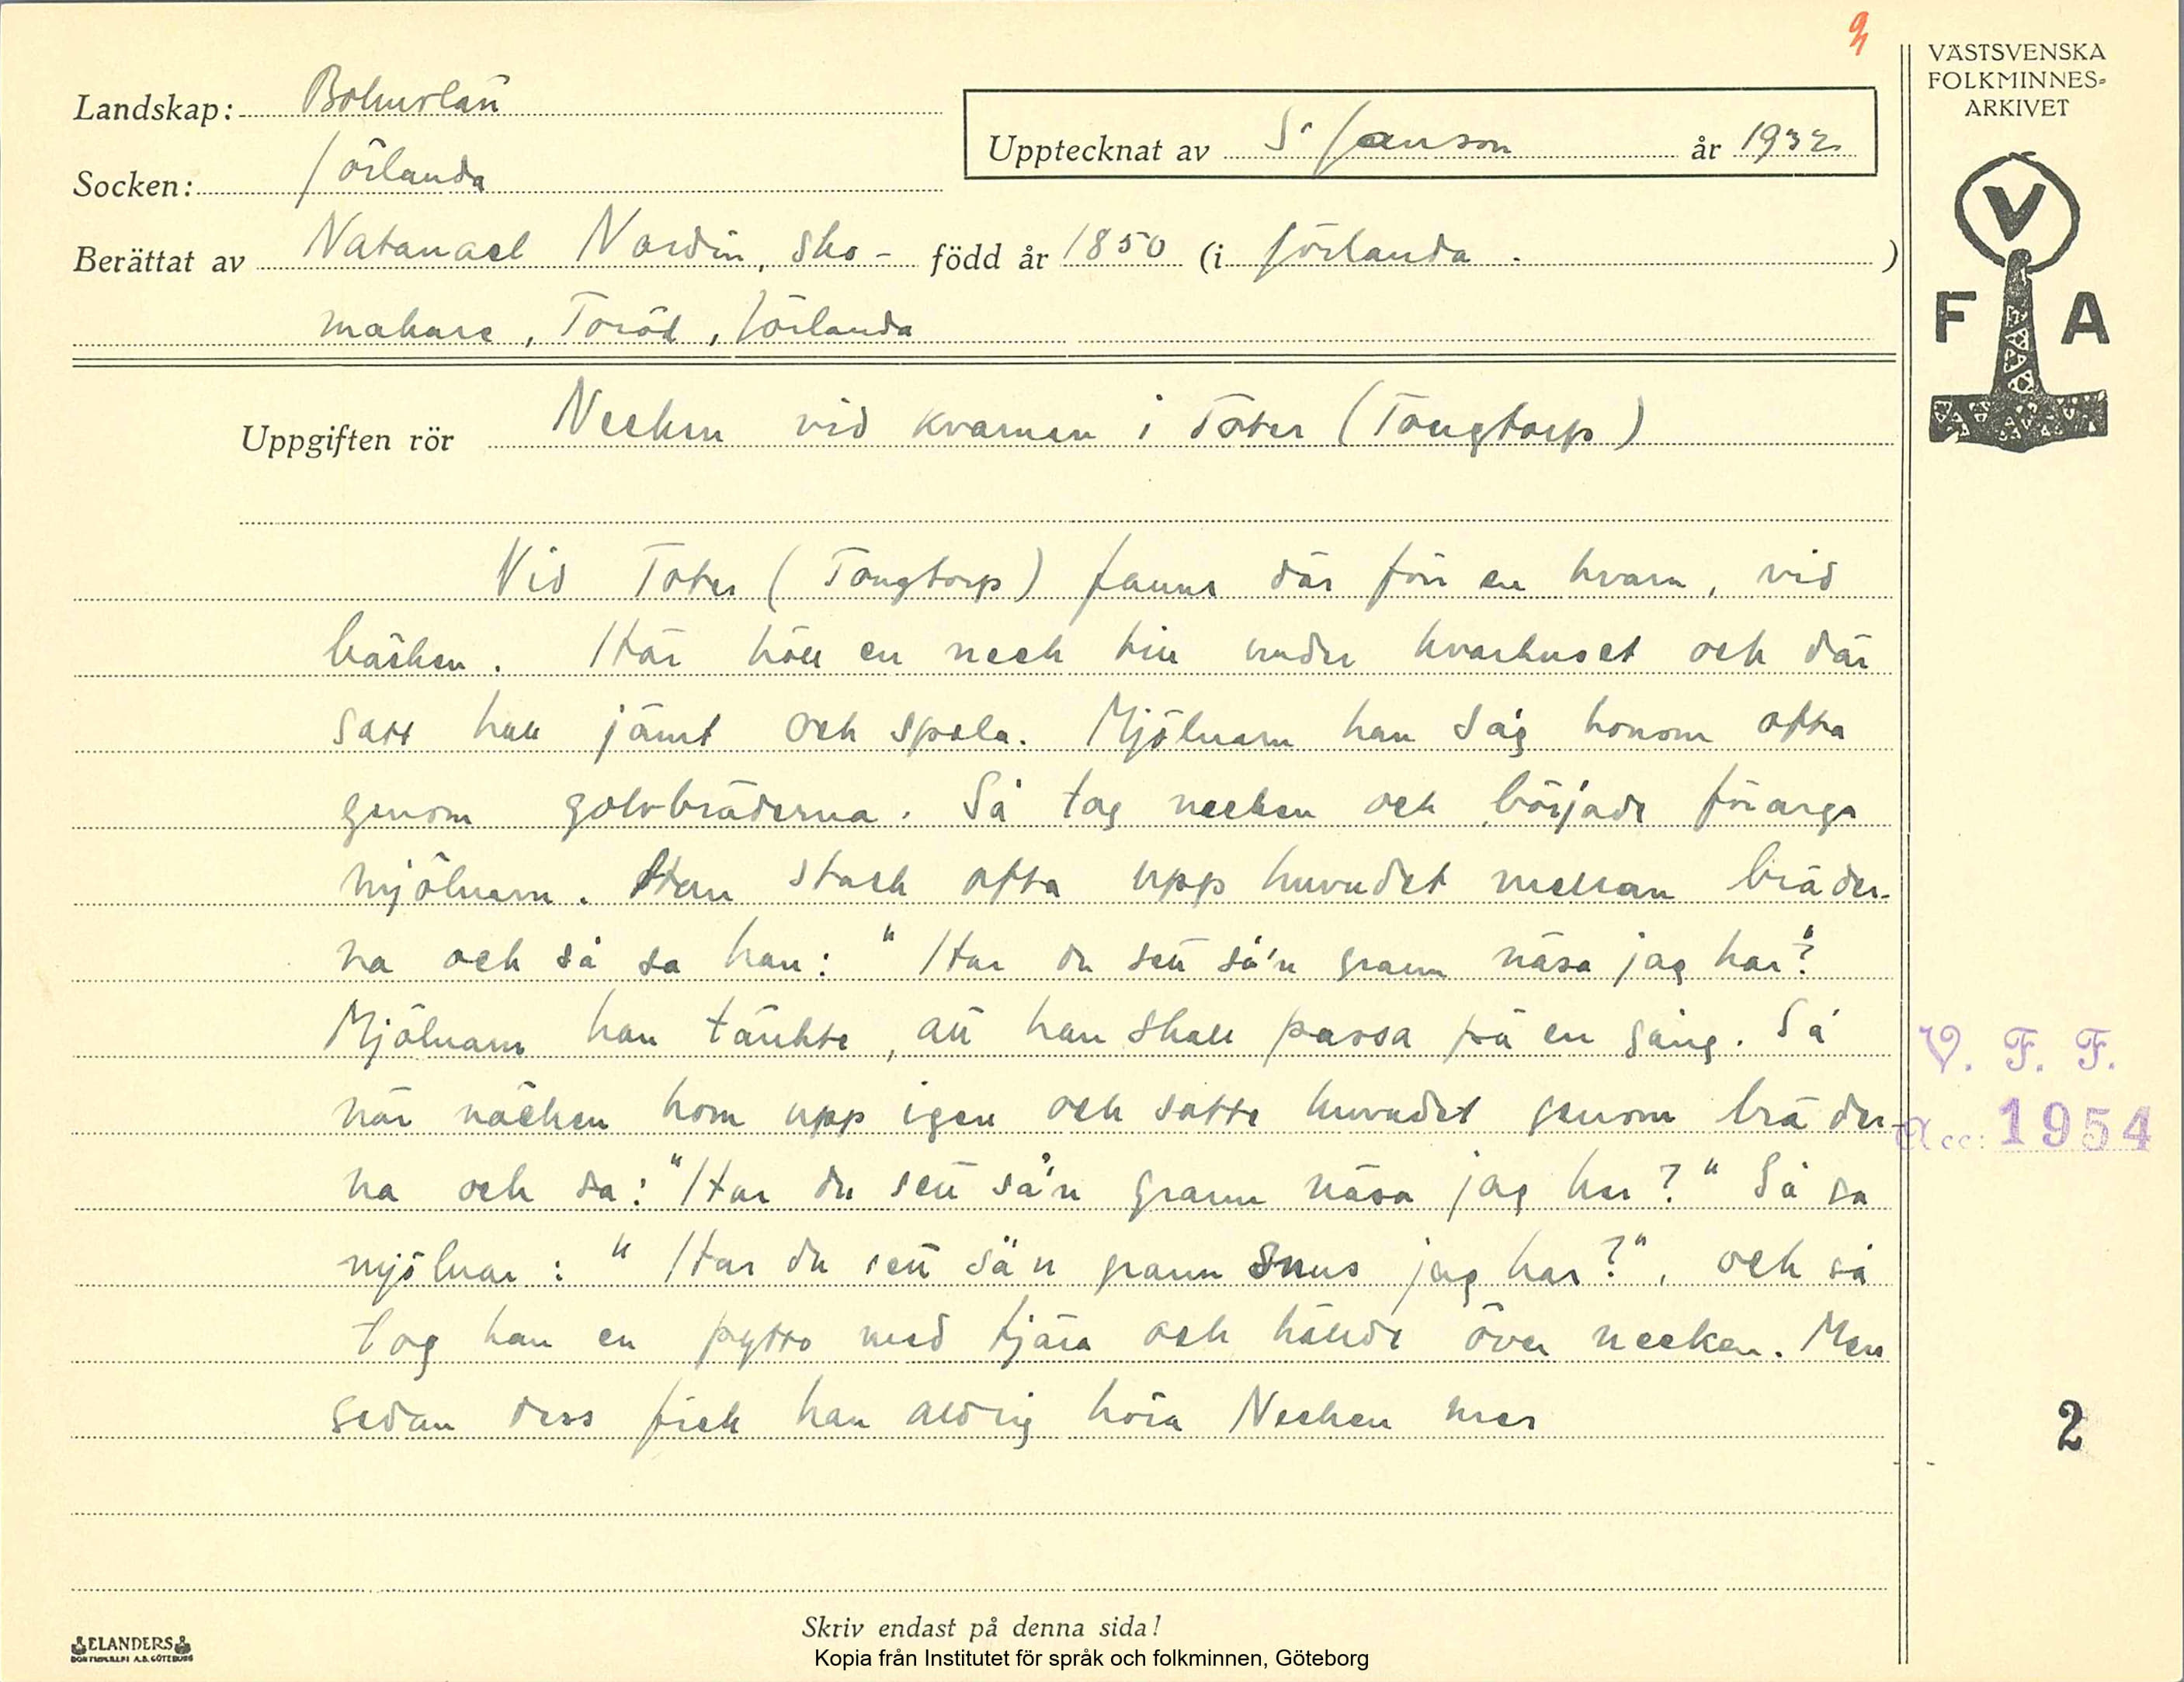 9
VÄSTSVENSKA
FOLKMINNES-
ARKIVET
V
F A
Landskap: Bohuslän
Upptecknat av S. Janson år 1932
Socken: Jörlanda
Berättat av Natanael Nordin, sko- född år 1850 (i Jörlanda.)
makare, Toröd, Jörlanda
Uppgiften rör Necken vid kvarnen i Toter (Tongtorp)
Vid Toter (Tongtorp) fanns där förr en kvarn, vid
bäcken. Här höll en neck till under kvarhuset och där
satt han jämt och spela. Mjölnarn han såg honom ofta
genom golvbräderna. Så tog necken och började förarga
mjölnarn. Han stack ofta upp huvudet mellan bräder-
na och så sa han: "Har du sett så'n grann näsa jag har?"
Mjölnarn han tänkte, att han skall passa på en gång. Så
när näcken kom upp igen och satte huvudet genom bräder-
na och sa: "Har du sett så'n grann näsa jag har?" Så sa
mjölnar: "Har du sett så'n grann snus jag har?", och så
tog han en pytto med tjära och hällde över necken. Men
sedan dess fick han aldrig höra Necken mer
V. F. F.
Acc: 1954
2
ELANDERS
BOKTRYCKERI A.B. GÖTEBORG
Skriv endast på denna sida!
Kopia från Institutet för språk och folkminnen, Göteborg